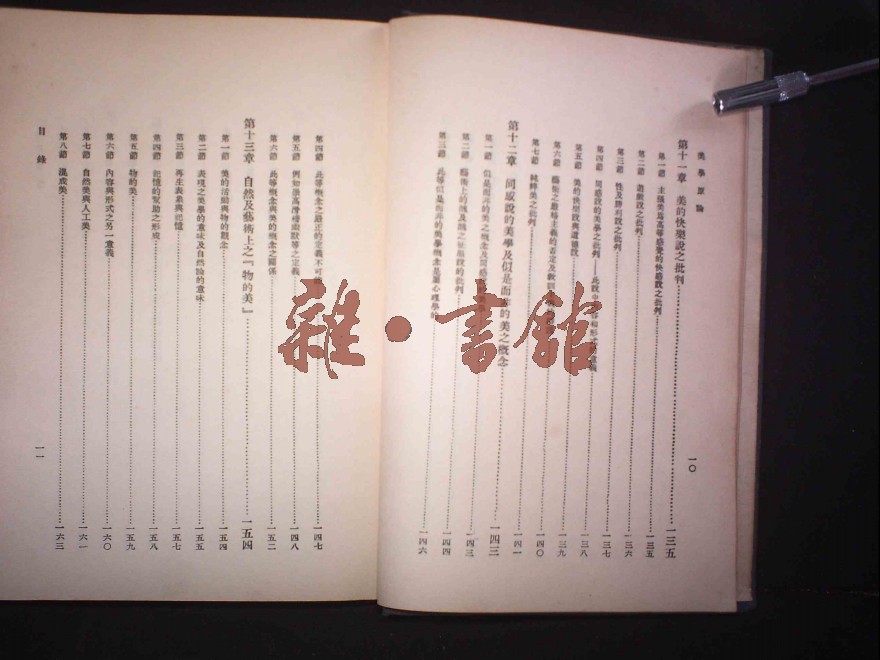 美學原論
一〇
第十一章 美的快樂說之批判 一三五
第一節 主張美爲高等感覺的快感說之批判 一三五
第二節 遊戲說之批判 一三六
第三節 性及勝利說之批判 一三六
第四節 同感說的美學之批判——此說中 一三七
第五節 美的快樂說與道德說 一三八
第六節 藝術之嚴格主義的否定及 一三九
第七節 純粹美之批判 一四〇
第十二章 同感說的美學及似是而非的美之概念 一四一
第一節 似是而非的美之概念及同感 一四三
第二節 藝術上的醜及醜之 說的批判 一四三
第三節 此等似是而非的美學概念是屬心理學的 一四四
一四六
第四節 此等概念之嚴正的定義不可 一四七
第五節 例如崇高滑稽幽默等之定義 一四八
第六節 此等概念與美的概念之關係 一五二
第十三章 自然及藝術上之「物的美」 一五四
第一節 美的活動與物的觀念 一五四
第二節 表現之美學的意味及自然論的意味 一五五
第三節 再生表象與記憶 一五七
第四節 記憶的幫助之形成 一五八
第五節 物的美 一五九
第六節 內容與形式之另一意義 一六〇
第七節 自然美與人工美 一六一
第八節 混成美 一六三
目錄
一一
雜·書館